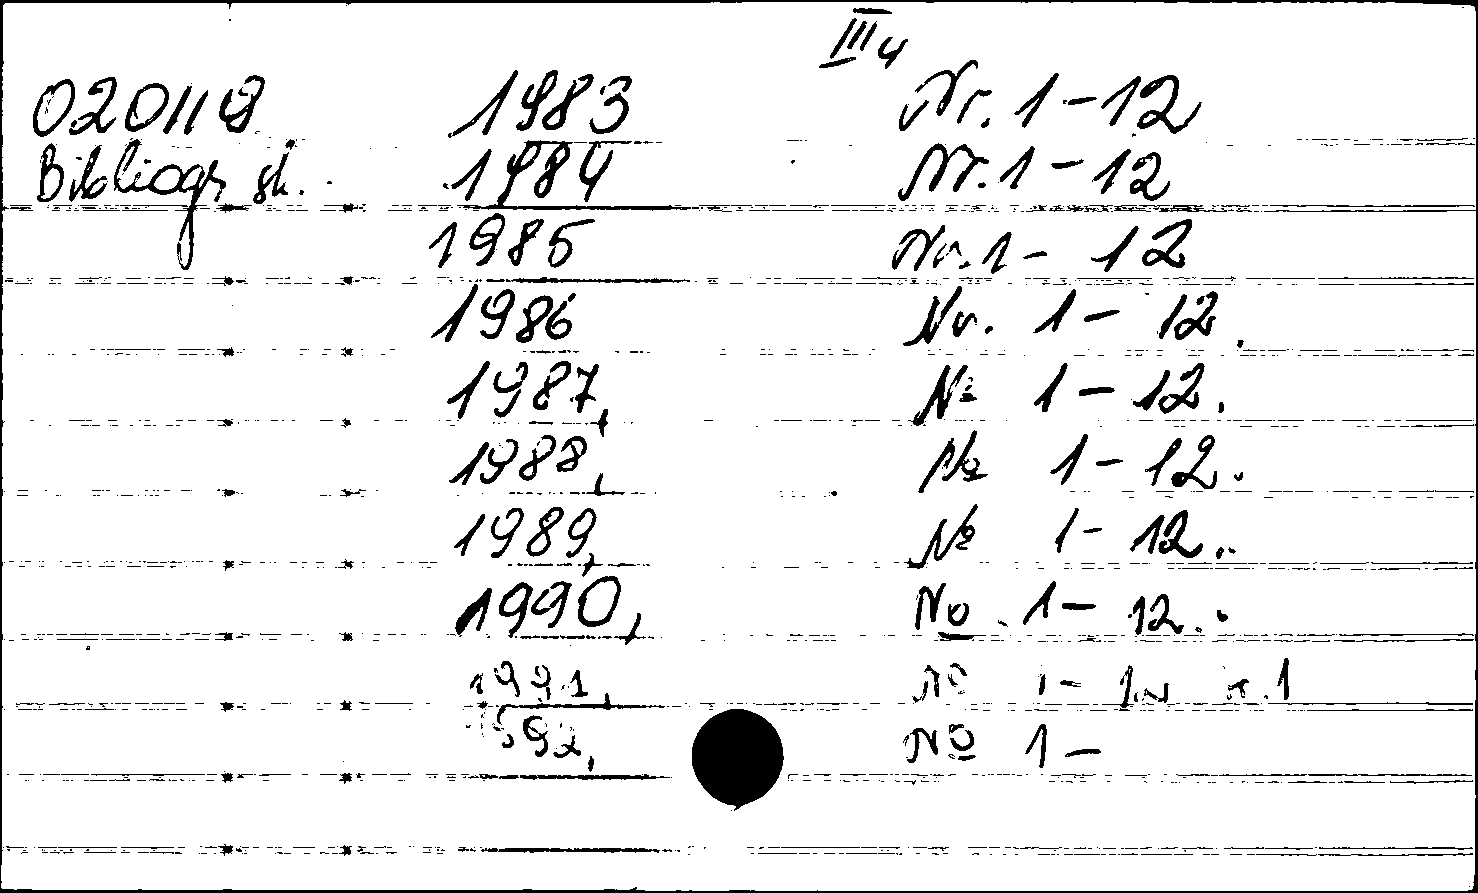 III 4
020118 1983 Nr. 1-12
Bibliogr. sk. 1984 Nr. 1-12
1985 Nr. 1- 12
1986 Nr. 1- 12.
1987, № 1-12.
1988, № 1-12.
1989, № 1-12.
1990, № 1-12.
1991, № 1-
1992, № 1-